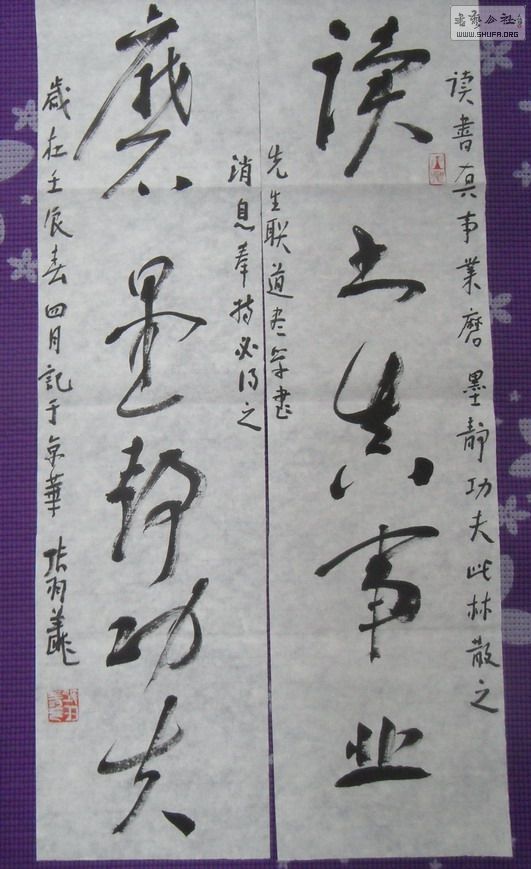 书艺公社
WWW.SHUFA.ORG
读书真事业磨墨静功夫此林散之
读书真事业
先生联道尽学书
消息奉持必得之
磨墨静功夫
岁在壬辰春四月記于京華